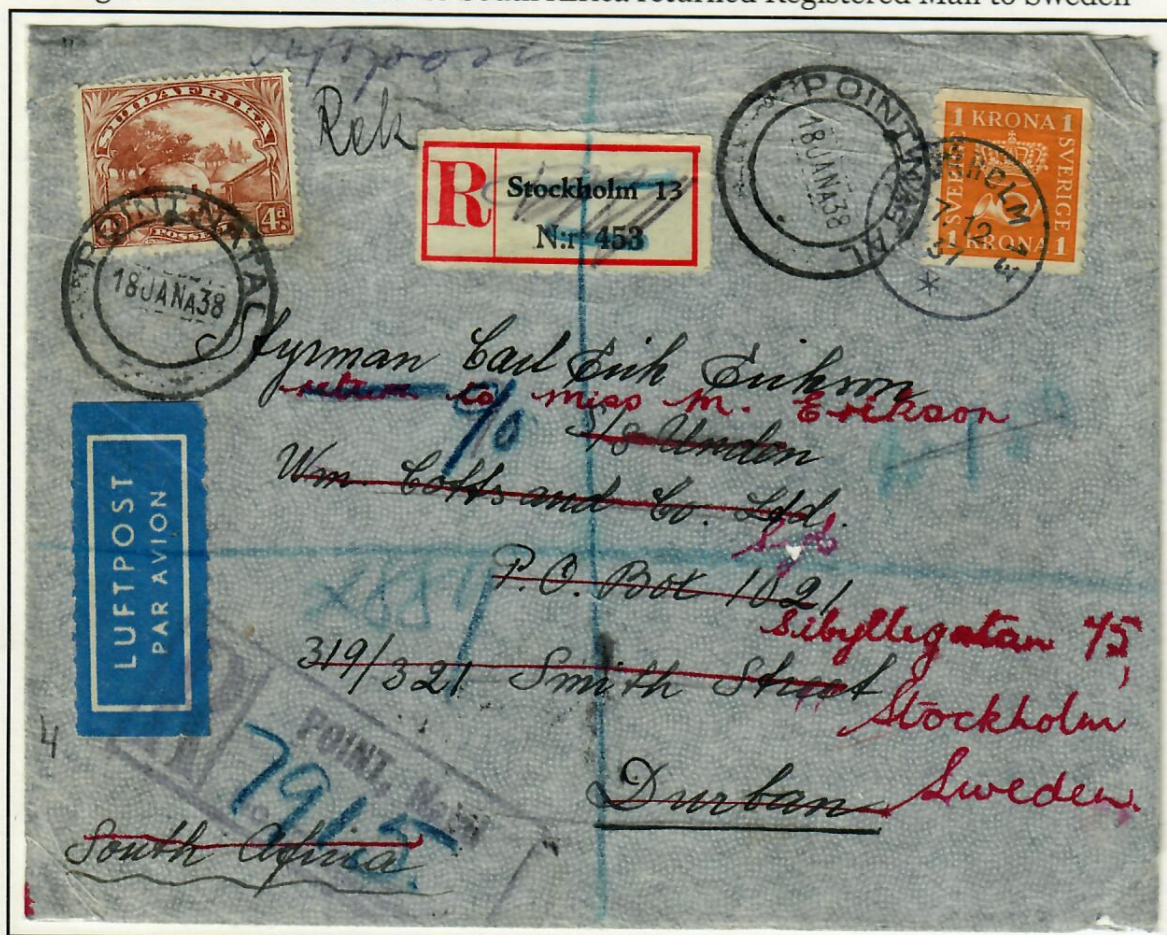 South Africa returned Registered Mail to Sweden
SUIDAFRIKA
4d
POSSEEL
POINT NATAL
18 JAN A 38
Rek
R
Stockholm 13
N:r 453
POINT NATAL
18 JAN A 38
1 KRONA 1
SVERIGE
SVERIGE
1 KRONA 1
STOCKHOLM 13
7-12
37
Styrman Carl Erik Erikson
return to Miss M. Erikson
c/o
S/S Unden
Wm. Cotts and Co. Ltd.
P.O. Box 1021
Sibyllegatan 75,
319/321 Smith Street
Stockholm
Durban
Sweden.
South Africa
LUFTPOST
PAR AVION
POINT, NATAL
7915
4